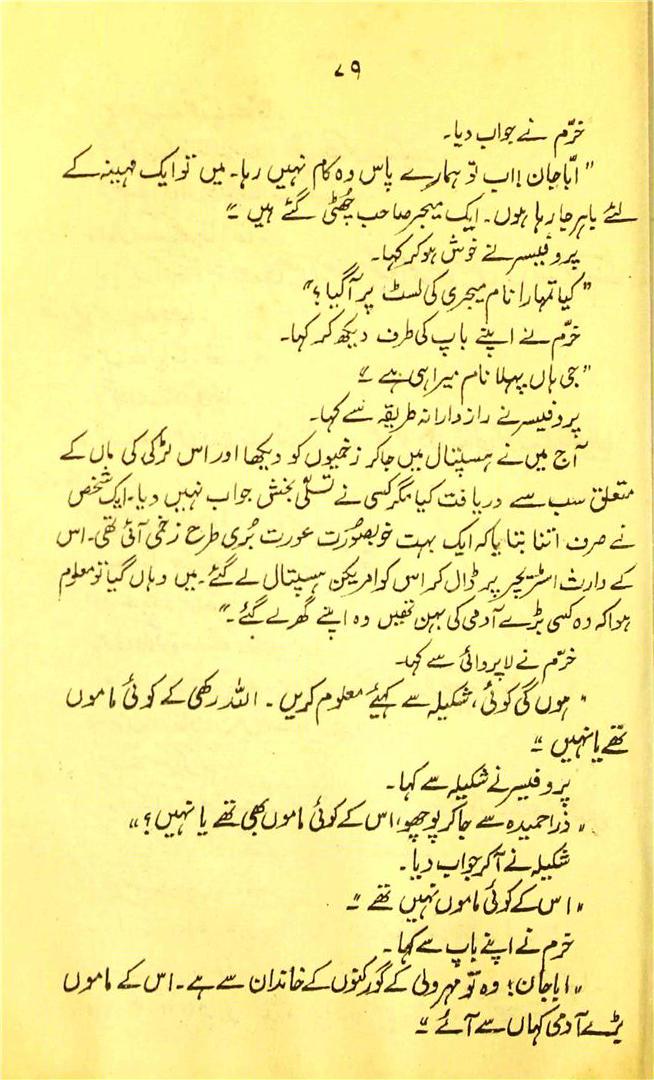 ۷۹
خرّم نے جواب دیا۔
"ابّا جان! اب تو ہمارے پاس وہ کام نہیں رہا۔ میں تو ایک مہینہ کے
لئے باہر جا رہا ہوں۔ ایک میجر صاحب چُھٹی گئے ہیں"
پروفیسر نے خوش ہو کر کہا۔
"کیا تمہارا نام میجری کی لسٹ پر آگیا؟"
خرّم نے اپنے باپ کی طرف دیکھ کر کہا۔
"جی ہاں پہلا نام میرا ہی ہے"
پروفیسر نے رازدارانہ طریقہ سے کہا۔
آج میں نے ہسپتال میں جا کر زخمیوں کو دیکھا اور اس لڑکی کی ماں کے
متعلق سب سے دریافت کیا مگر کسی نے تسلّی بخش جواب نہیں دیا۔ ایک شخص
نے صرف اتنا بتایا کہ ایک بہت خوبصورت عورت بُری طرح زخمی آئی تھی۔ اس
کے وارث اسٹریچر پر ڈال کر اس کو امریکن ہسپتال لے گئے۔ میں وہاں گیا تو معلوم
ہوا کہ وہ کسی بڑے آدمی کی بہن تھیں وہ اپنے گھر لے گئے۔"
خرّم نے لاپروائی سے کہا۔
"ہوں گی کوئی، شکیلہ سے کہیئے معلوم کریں۔ اللہ رکھی کے کوئی ماموں
تھے یا نہیں"
پروفیسر نے شکیلہ سے کہا۔
"ذرا حمیدہ سے جا کر پوچھو، اس کے کوئی ماموں بھی تھے یا نہیں؟"
شکیلہ نے آکر جواب دیا۔
"اس کے کوئی ماموں نہیں تھے"
خرم نے اپنے باپ سے کہا۔
"ابا جان! وہ تو مہرولی کے گورکنوں کے خاندان سے ہے۔ اس کے ماموں
بڑے آدمی کہاں سے آئے"